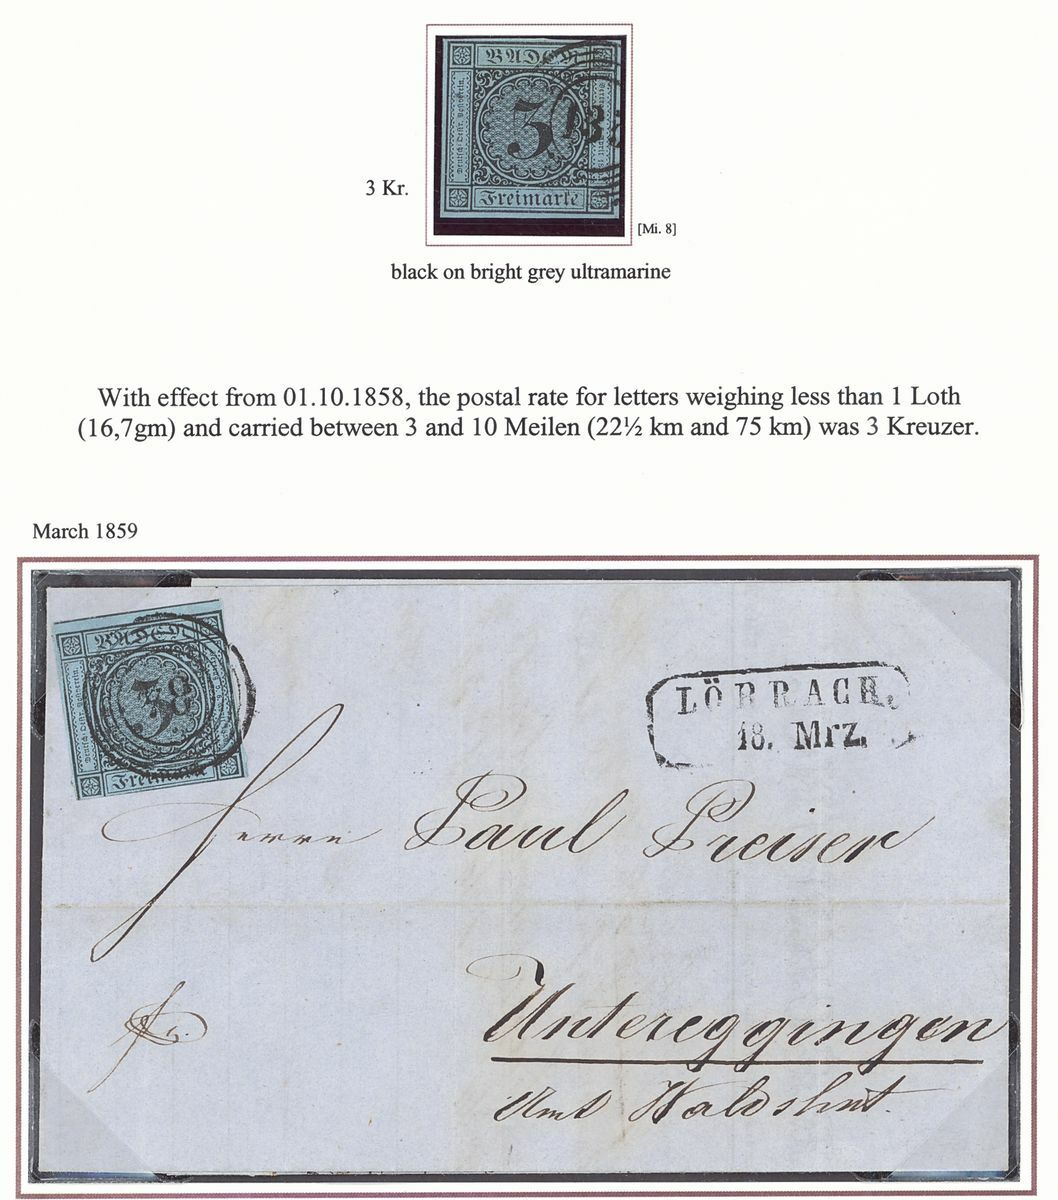 BADEN
Deutsch-Östr. Postverein.
3
Freimarke
3 Kr.
[Mi. 8]
black on bright grey ultramarine
With effect from 01.10.1858, the postal rate for letters weighing less than 1 Loth
(16,7gm) and carried between 3 and 10 Meilen (22½ km and 75 km) was 3 Kreuzer.
March 1859
BADEN
Deutsch-Östr. Postverein.
3
Freimarke
LÖRRACH.
18. Mrz.
Herrn Paul Preiser
Untereggingen
Amt Waldshut.